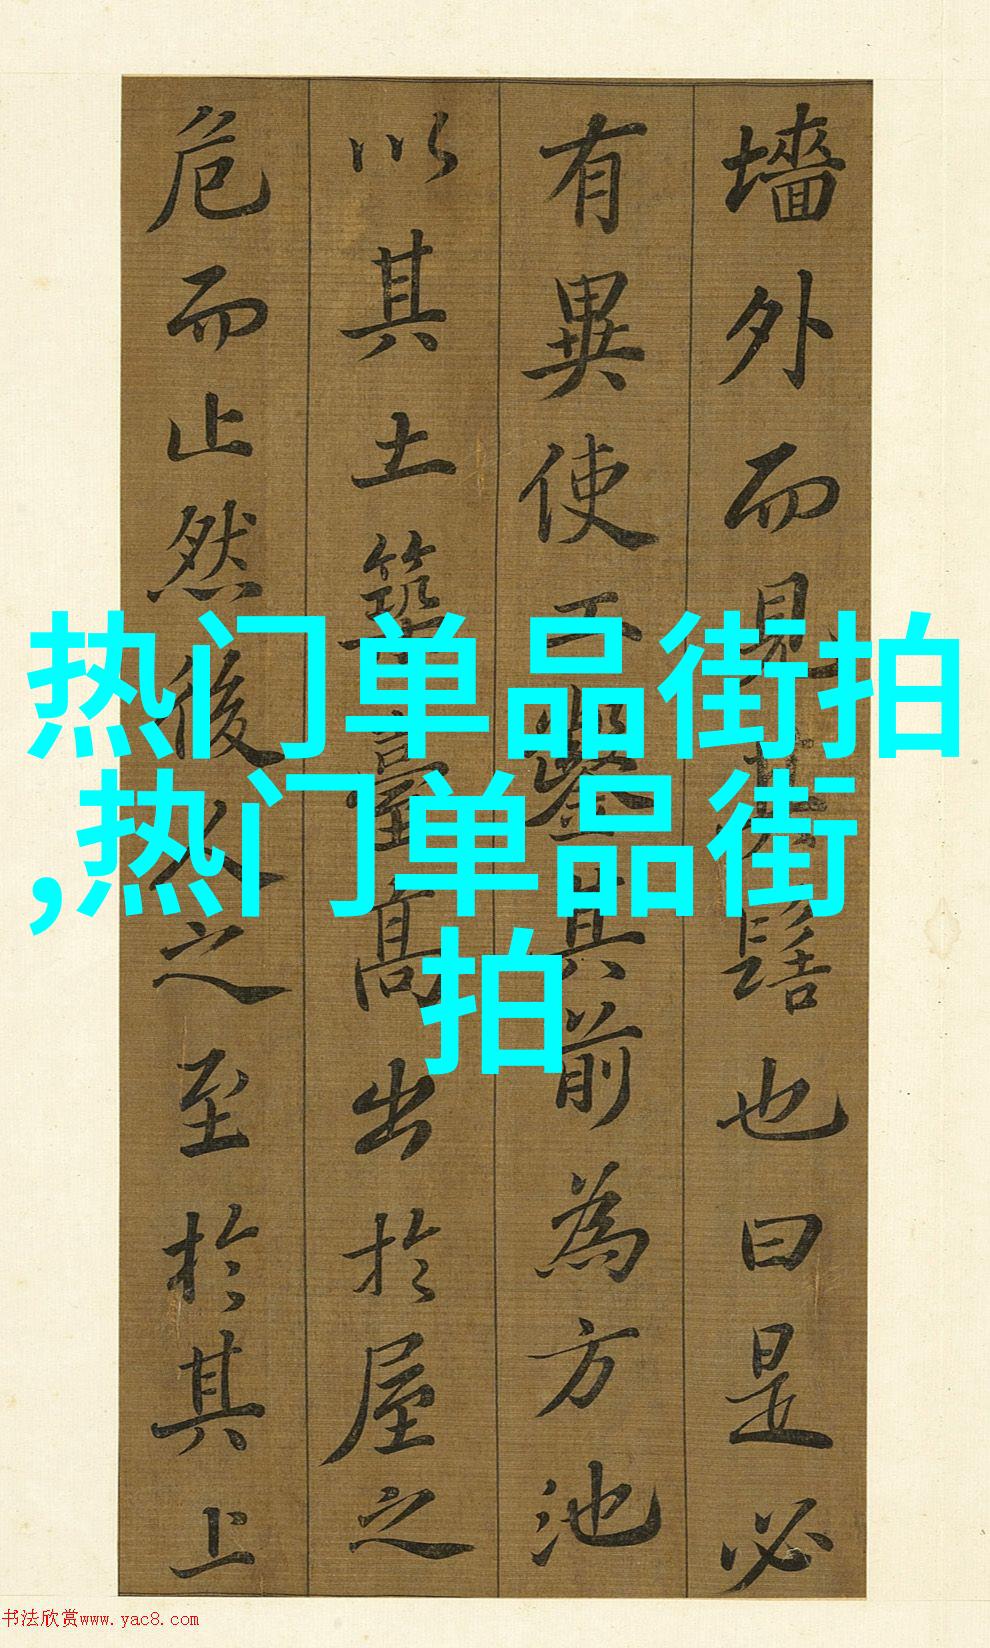 墻外而見其髻也曰是必
有異使工鑿其前為方池
以其土築臺高出於屋之
危而止然後人之至於其上
热门单品街拍
,热门单品街
拍
书法欣赏www.yac8.com